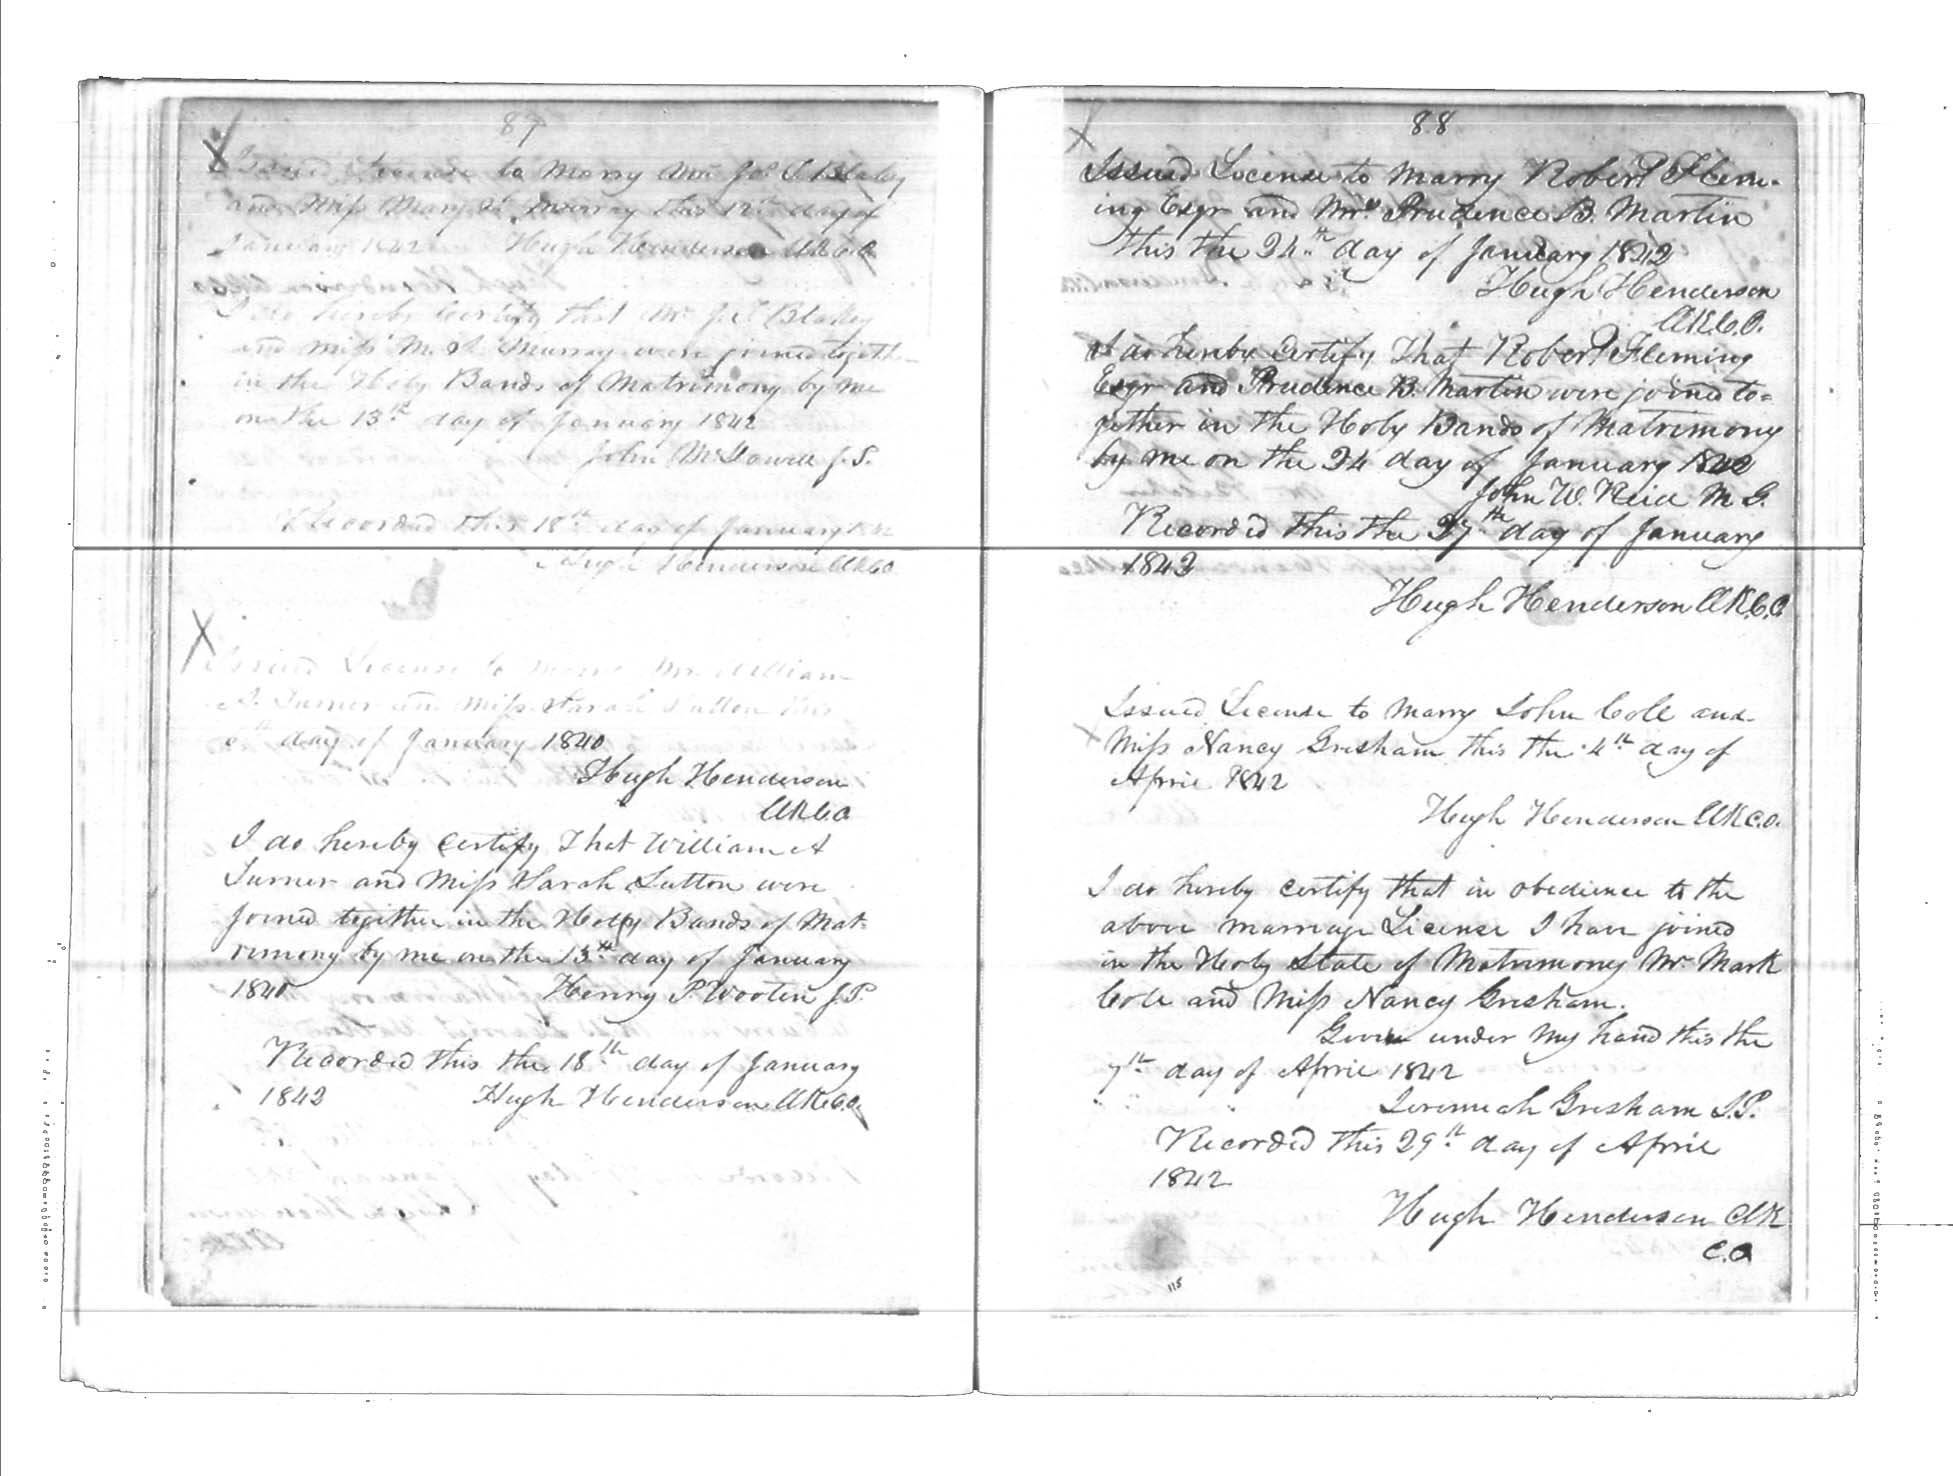 87
Issued License to Marry Mr. Jos. S. Blakey
and Miss Mary A. Murray this 12th day of
January 1842 Hugh Henderson Clk C.O.
I do hereby Certify that Mr. Jos. Blakey
and Miss M. A. Murray were joined togeth-
in the Holy Bands of Matrimony by me
on the 13th day of January 1842
John McDowell J. P.
Recorded this 18th day of January 1842
Hugh Henderson Clk CO
Issued License to Marry Mr. William
A. Turner and Miss Sarah Sutton this
day of January 1840
Hugh Henderson
Clk C.O
I do hereby Certify That William A
Turner and Miss Sarah Sutton were
Joined together in the Holy Bands of Mat-
rimony by me on the 13th day of January
1840 Henry P. Wooten J.P.
Recorded this the 18th day of January
1842 Hugh Henderson Clk C.O.
88
Issued License to Marry Robert Flem-
ing Esqr and Mrs Prudence B. Martin
this the 24th day of January 1842
Hugh Henderson
Clk C.O.
I do hereby Certify That Robert Fleming
Esqr and Prudence B. Martin were joined to=
gether in the Holy Bands of Matrimony
by me on the 24 day of January 1842
John W. Reid M. G.
Recorded this the 27th day of January
1842
Hugh Henderson Clk C.O
Issued License to Marry John Cole and
Miss Nancy Gresham this the 4th day of
April 1842
Hugh Henderson Clk C.O.
I do hereby certify that in obedience to the
above marriage License I have joined
in the Holy State of Matrimony Mr. Mark
Cole and Miss Nancy Gresham.
Given under my hand this the
7th day of April 1842
Jeremiah Gresham J.P.
Recorded this 29th day of April
1842
Hugh Henderson Clk
C.O
115